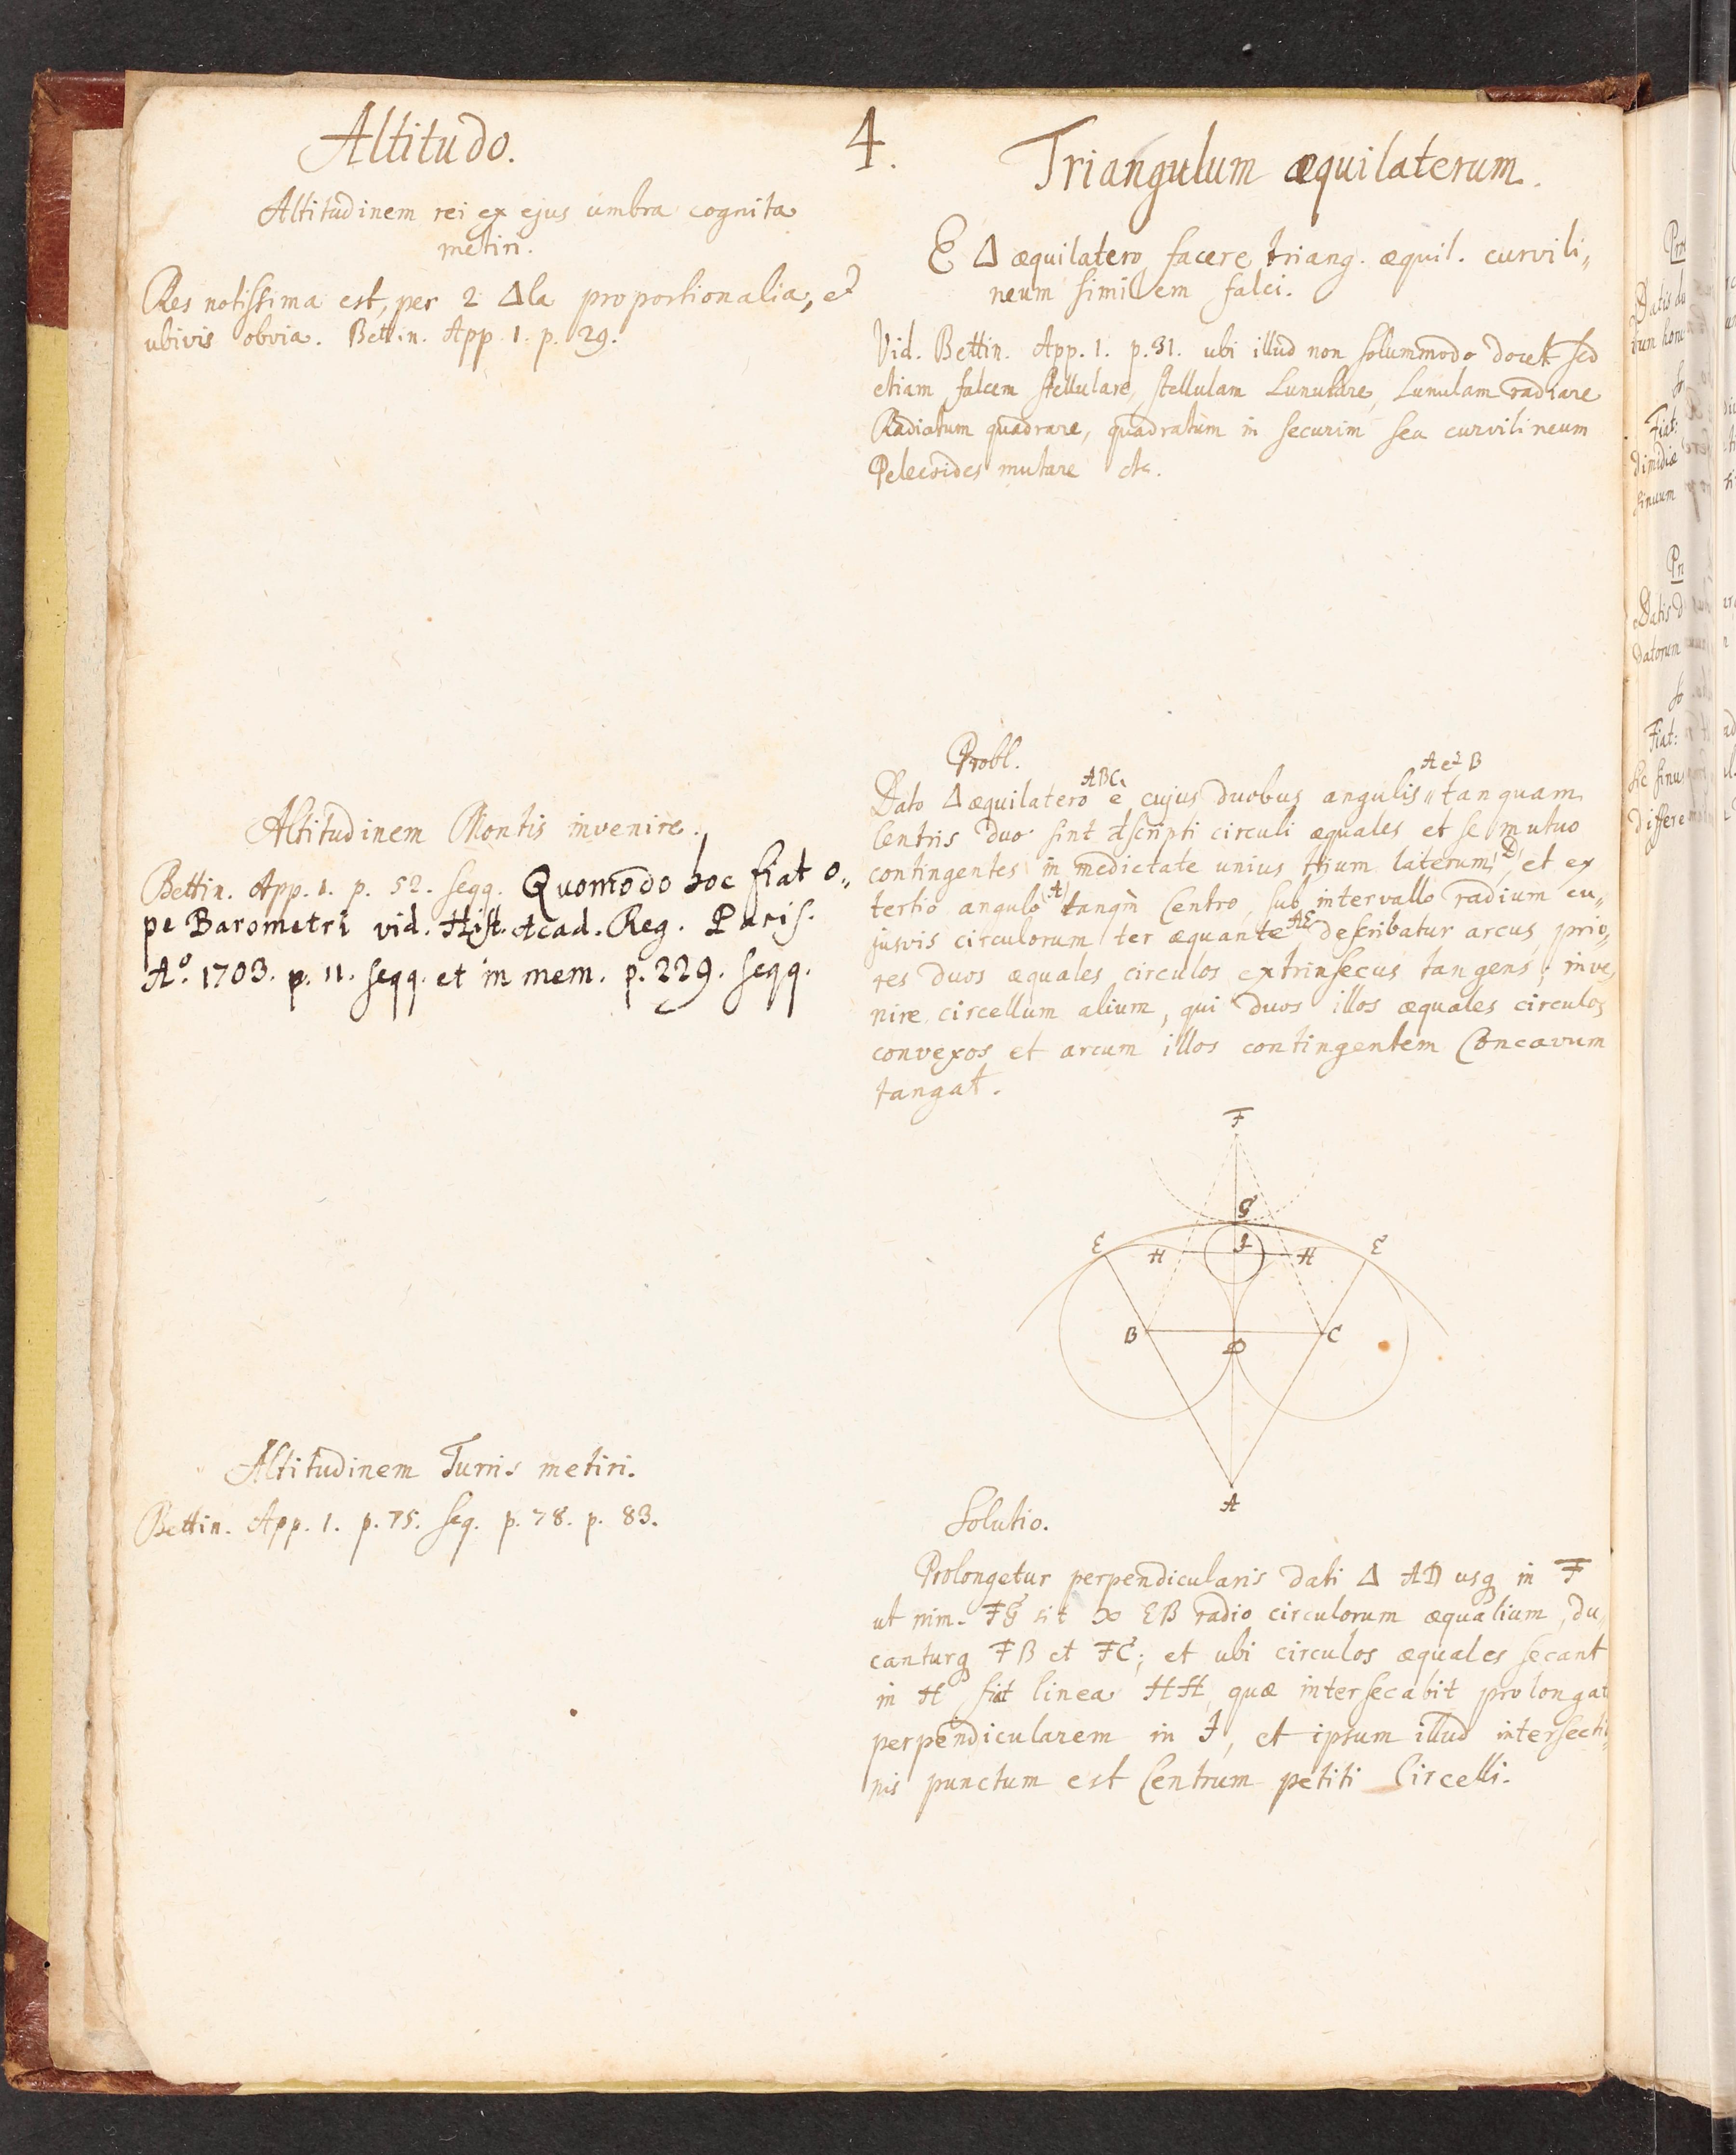 4.
Altitudo.
Altitudinem rei ex ejus umbra cognita
metiri.
Res notissima est, per 2 Δla proportionalia, et
ubivis obvia. Bettin. App. 1. p. 29.
Altitudinem Montis invenire.
Bettin. App. 1. p. 52. seqq. Quomodo hoc fiat o„
pe Barometri vid. Hist. Acad. Reg. Paris.
Aº. 1703. p. 11. seqq. et in mem. p. 229. seqq.
Altitudinem Turris metiri.
Bettin. App. 1. p. 75. seq. p. 78. p. 83.
Triangulum æquilaterum.
E Δ æquilatero facere triang. æquil. curvili„
neum similem falci.
Vid. Bettin. App. 1. p. 31. ubi illud non solummodo docet sed
etiam falcem stellulare, stellulam Lunulare, Lunulam radiare
Radiatum quadrare, quadratum in securim seu curvilineum
Pelecoides mutare etc.
Probl.
Dato Δ æquilatero ABC, e cujus duobus angulis A et B tanquam
Centris duo sint descripti circuli æquales et se mutuo
contingentes in medietate unius trium laterum D, et ex
tertio angulo (A) tanqm̄ Centro, sub intervallo radium cu„
jusvis circulorum ter æquante AE describatur arcus, prio„
res duos æquales circulos extrinsecus tangens; inve„
nire circellum alium, qui duos illos æquales circulos
convexos et arcum illos contingentem Concavum
tangat.
F
G
E H I H E
B D C
A
Solutio.
Prolongetur perpendicularis dati Δ AD usq in F
ut nim. FG sit ∞ EB radio circulorum æqualium, du„
canturq FB et FC; et ubi circulos æquales secant
in H, fiat linea HH, quæ intersecabit prolongat
perpendicularem in I, et ipsum illud intersectio„
nis punctum est Centrum petiti Circelli.